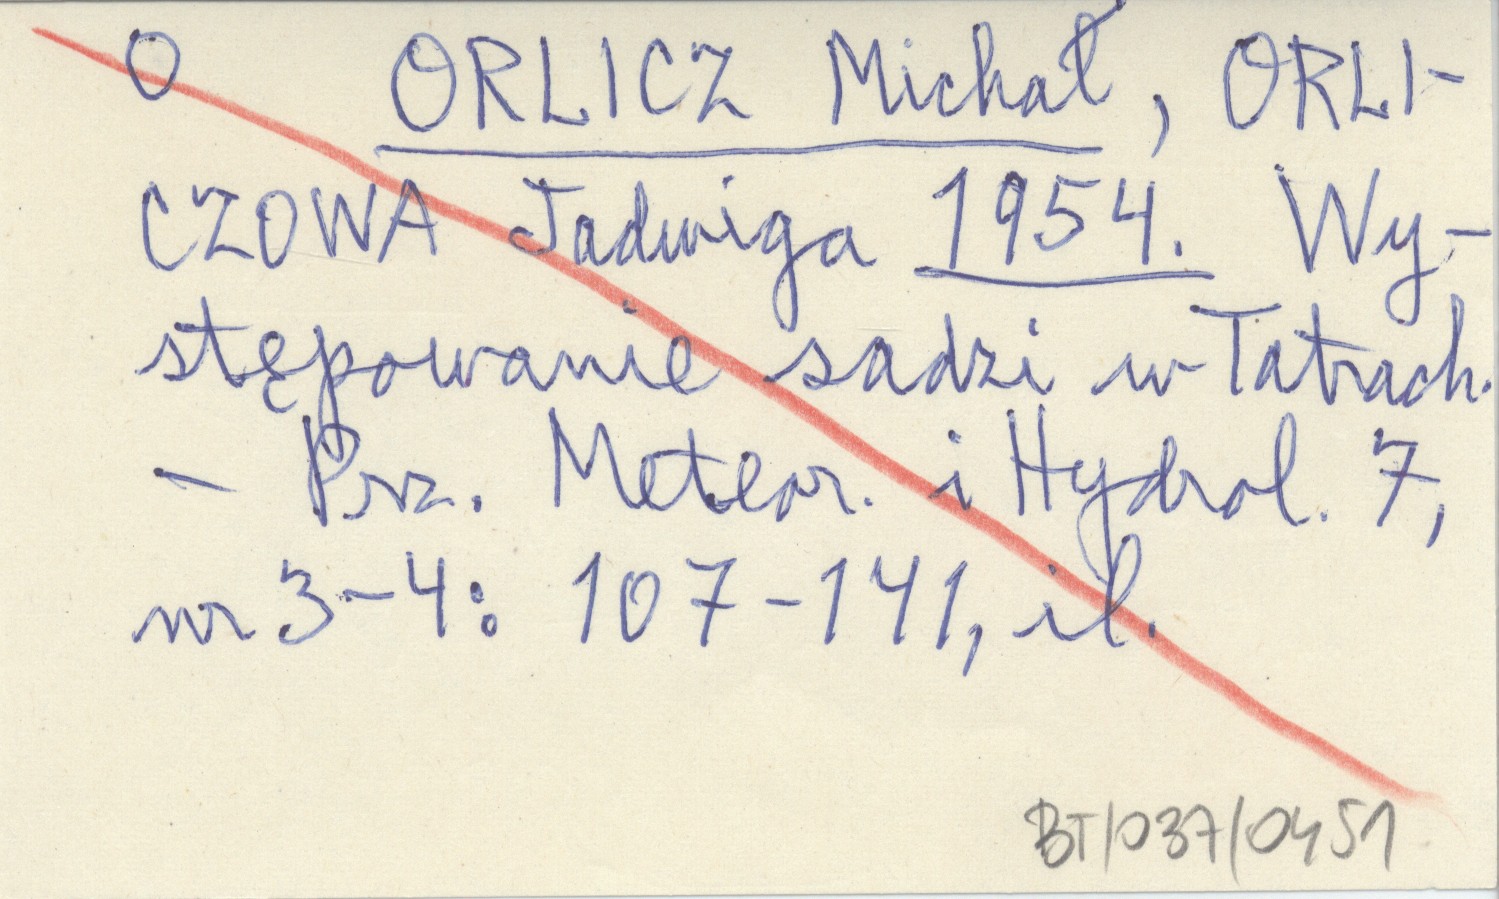 O ORLICZ Michał, ORLI-
CZOWA Jadwiga 1954. Wy-
stępowanie sadzi w Tatrach.
- Prz. Meteor. i Hydrol. 7,
nr 3-4: 107-141, il.
BT/037/0451